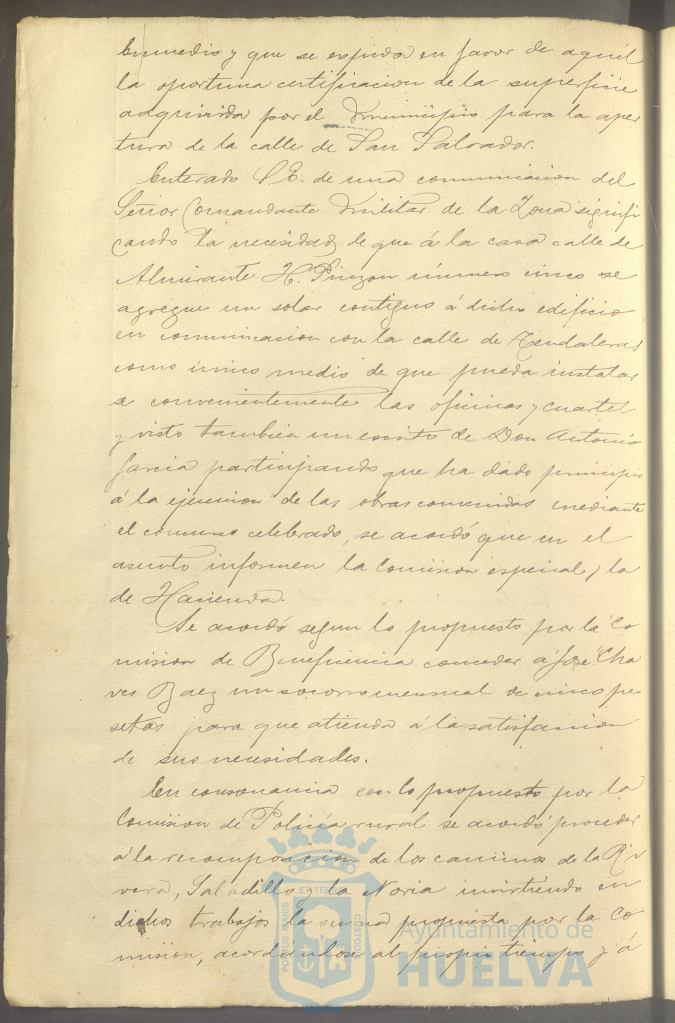 Enmedio y que se expida en favor de aquél
la oportuna certificacion de la superficie
adquirida por el Municipio para la aper
tura de la calle de San Salvador.
Enterado S. E. de una comunicacion del
Señor Comandante Militar de la Zona signifi
cando la necesidad de que á la casa calle de
Almirante H. Pinzon número cinco se
agregue un solar contiguo á dicho edificio
en comunicacion con la calle de Tendaleras
como único medio de que pueda instalar
se convenientemente las oficinas y cuartel
y visto tambien un escrito de Don Antonio
Garcia participando que ha dado principio
á la ejecucion de las obras convenidas mediante
el concurso celebrado, se acordó que en el
asunto informen la Comision especial y la
de Hacienda.
Se acordó segun lo propuesto por la Co
mision de Beneficencia conceder á José Cha
ves Baez un socorro mensual de cinco pe
setas para que atienda á la satisfaccion
de sus necesidades.
En consonancia con lo propuesto por la
Comision de Policía rural se acordó proceder
á la recomposicion de los caminos de la Ri
vera, Saladillo y la Noria invirtiendo en
dichos trabajos la suma propuesta por la Co
mision, acordándose al propio tiempo y á
PORTUS MARIS ET TERRAE CUSTODIA
Ayuntamiento de
HUELVA